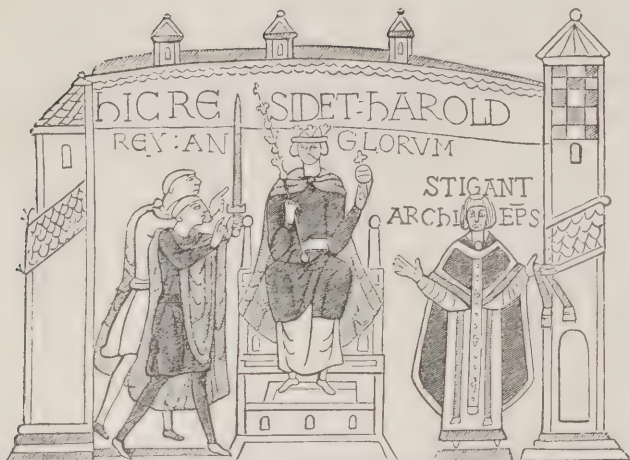 hIC RE SIDET: hAROLD
REX: AN GLORVM
STIGANT
ARChI EP̅S